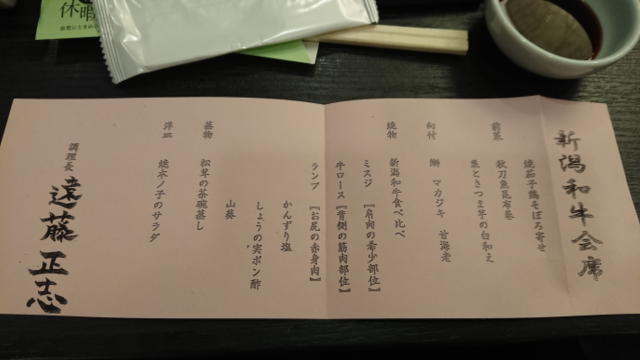 新潟和牛会席
前菜
焼茄子鶏そぼろ寄せ
秋刀魚昆布巻
栗とさつま芋の白和え
向付
鰤 マカジキ 甘海老
焼物
新潟和牛食べ比べ
ミスジ 【肩肉の希少部位】
牛ロース【背側の筋肉部位】
ランプ 【お尻の赤身肉】
かんずり塩
しょうの実ポン酢
山葵
蒸物
松茸の茶碗蒸し
洋皿
焼木ノ子のサラダ
調理長
遠藤正志
休暇